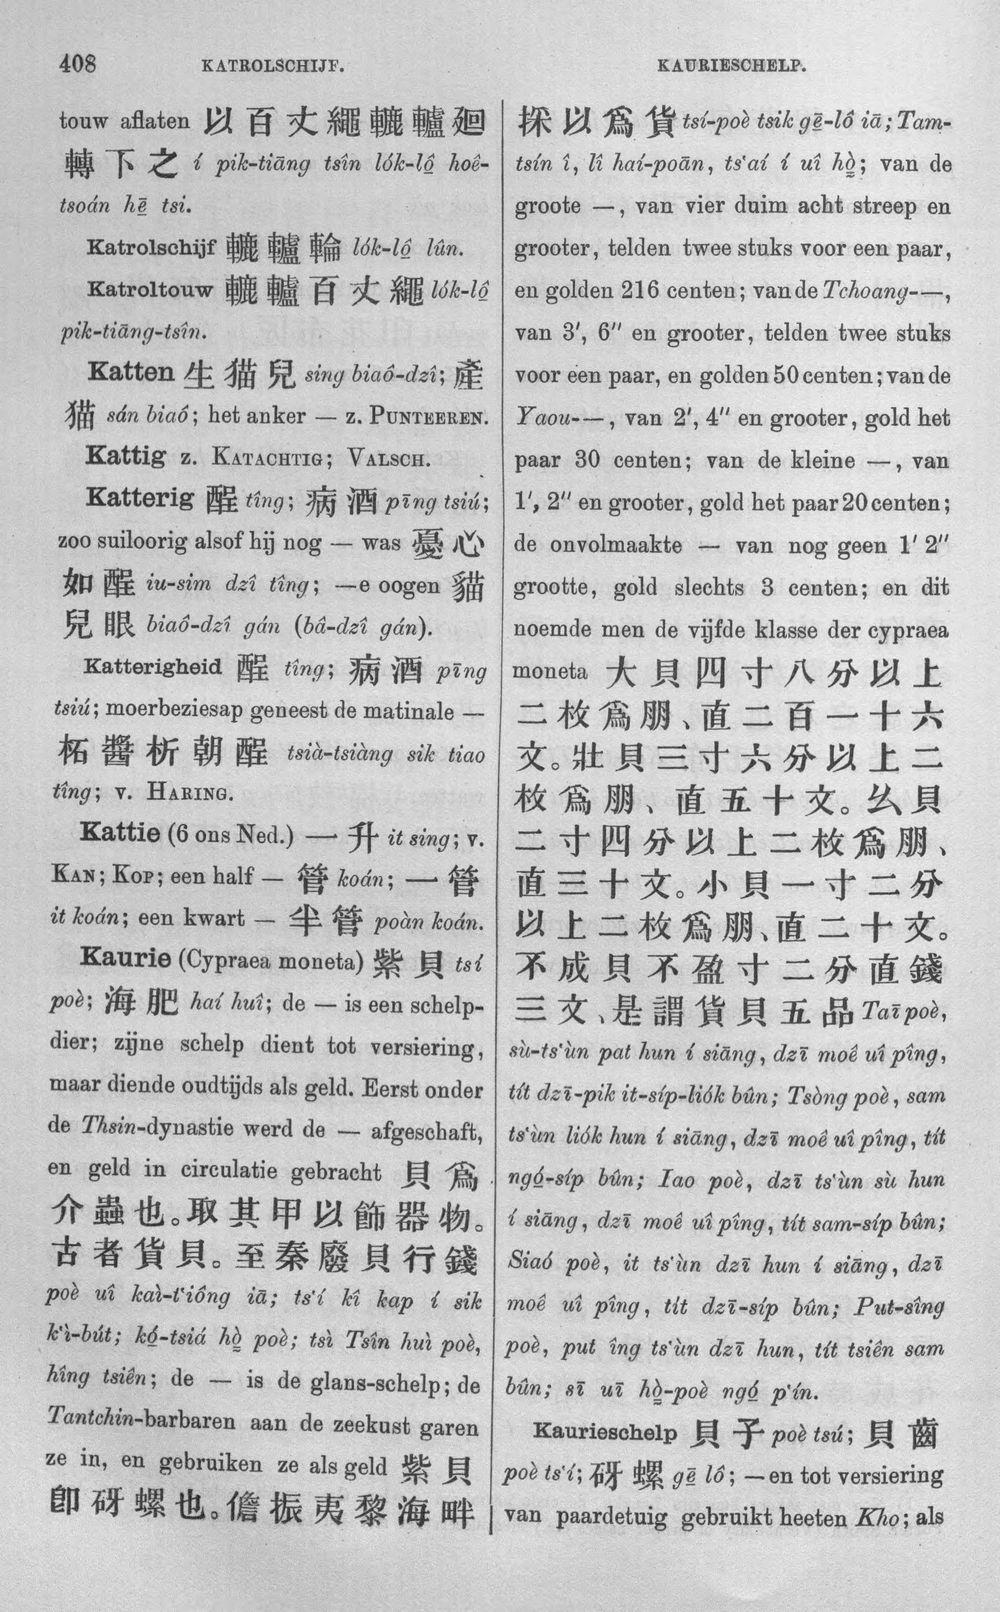 408 KATROLSCHIJF. KAURIESCHELP.
touw aflaten 以百丈繩轆轤廻
轉下之 í pik-tiāng tsîn lók-lô̤ hoê-
tsoán hē̤ tsi.
Katrolschijf 轆轤輪 lók-lô̤ lûn.
Katroltouw 轆轤百丈繩 lók-lô̤
pik-tiāng-tsîn.
Katten 生猫兒 sing biaô-dzî; 產
猫 sán biaô; het anker — z. PUNTEEREN.
Kattig z. KATACHTIG; VALSCH.
Katterig 酲 tîng; 病酒 pīng tsiú;
zoo suiloorig alsof hij nog — was 憂心
如酲 iu-sim dzî tîng; —e oogen 貓
兒眼 biaô-dzî gán (bâ-dzî gán).
Katterigheid 酲 tîng; 病酒 pīng
tsiú; moerbeziesap geneest de matinale —
柘醬析朝酲 tsià-tsiàng sik tiao
tîng; v. HARING.
Kattie (6 ons Ned.) 一升 it sing; v.
KAN; KOP; een half — 管 koán; 一管
it koán; een kwart — 半管 poàn koán.
Kaurie (Cypraea moneta) 紫貝 tsí
poè; 海肥 haí huî; de — is een schelp-
dier; zijne schelp dient tot versiering,
maar diende oudtijds als geld. Eerst onder
de Thsin-dynastie werd de — afgeschaft,
en geld in circulatie gebracht 貝爲
介蟲也。取其甲以飾器物。
古者貨貝。至秦廢貝行錢
poè uî kaì-t'iông iā; ts'í kî kap í sik
k'ì-bút; kó̤-tsiá hò̤ poè; tsì Tsîn huì poè,
hîng tsiên; de — is de glans-schelp; de
Tantchin-barbaren aan de zeekust garen
ze in, en gebruiken ze als geld 紫貝
卽砑螺也。儋振夷黎海畔
採以爲貨 tsí-poè tsik gē̤-lô iā; Tam-
tsín î, lî haí-poān, ts'aí í uî hò̤; van de
groote —, van vier duim acht streep en
grooter, telden twee stuks voor een paar,
en golden 216 centen; van de Tchoang-—,
van 3', 6" en grooter, telden twee stuks
voor een paar, en golden 50 centen; van de
Yaou-—, van 2', 4" en grooter, gold het
paar 30 centen; van de kleine —, van
1', 2" en grooter, gold het paar 20 centen;
de onvolmaakte — van nog geen 1' 2"
grootte, gold slechts 3 centen; en dit
noemde men de vijfde klasse der cypraea
moneta 大貝四寸八分以上
二枚爲朋、直二百一十六
文。壯貝三寸六分以上二
枚爲朋、直五十文。幺貝
二寸四分以上二枚爲朋、
直三十文。小貝一寸二分
以上二枚爲朋、直二十文。
不成貝不盈寸二分直錢
三文、是謂貨貝五品 Taī poè,
sù-ts'ùn pat hun í siāng, dzī moê uî pîng,
tít dzī-pik it-síp-liók bûn; Tsòng poè, sam
ts'ùn liók hun í siāng, dzī moê uî pîng, tít
ngó̤-síp bûn; Iao poè, dzī ts'ùn sù hun
í siāng, dzī moê uî pîng, tít sam-síp bûn;
Siaó poè, it ts'ùn dzī hun í siāng, dzī
moê uî pîng, tít dzī-síp bûn; Put-sîng
poè, put îng ts'ùn dzī hun, tít tsiên sam
bûn; sī uī hò̤-poè ngó̤ p'ín.
Kaurieschelp 貝子 poè tsú; 貝齒
poè ts'í; 砑螺 gē̤ lô; —en tot versiering
van paardetuig gebruikt heeten Kho; als